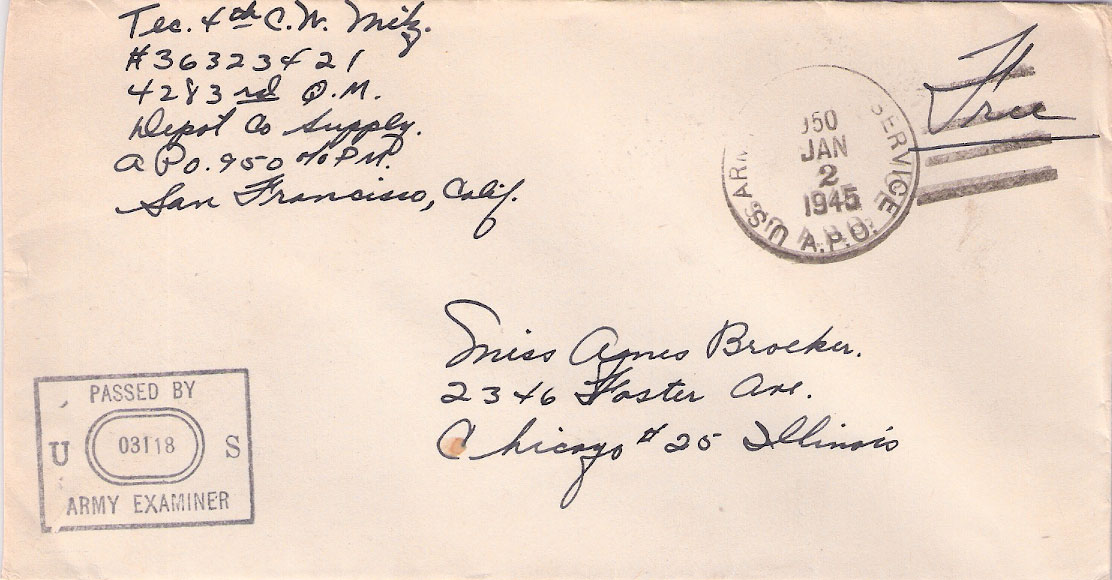 Tec. 4th C.W. Metz.
#36323421
4283rd Q.M.
Depot Co Supply.
A P.O. 950 c/o P.M.
San Francisco, Calif.
Free
SERVICE
950
JAN
2
1945
A.P.O.
Miss Agnes Brocker.
2346 Foster Ave.
Chicago #25 Illinois
PASSED BY
U 03118 S
ARMY EXAMINER